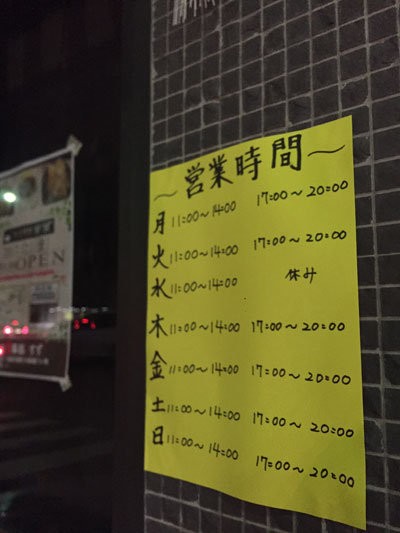 ～営業時間～
月 11:00～14:00 17:00～20:00
火 11:00～14:00 17:00～20:00
水 11:00～14:00 休み
木 11:00～14:00 17:00～20:00
金 11:00～14:00 17:00～20:00
土 11:00～14:00 17:00～20:00
日 11:00～14:00 17:00～20:00
OPEN